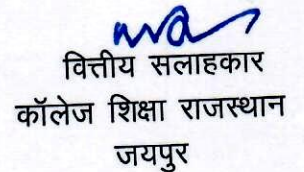 वित्तीय सलाहकार
कॉलेज शिक्षा राजस्थान
जयपुर